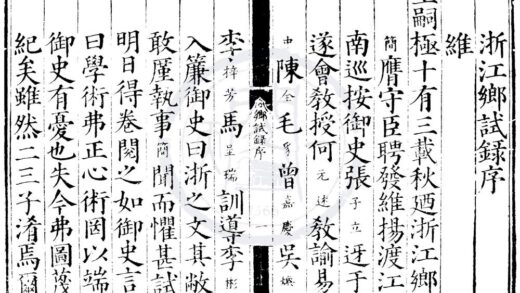 浙江鄉試錄序
維
嗣極十有三載秋廼浙江鄉
簡膺守臣聘發維揚渡江
南巡按御史張子立迓于
遂會敎授何元述敎諭易
中陳全毛曾嘉慶吳
鄉試録序
李梓芳馬呈瑞訓導李彬
入簾御史曰浙之文其敝
敢厪執事簡聞而懼甚試
明日得卷閱之如御史言
曰學術弗正心術罔以端
御史有憂也失今弗圖茂
紀矣雖然二三子淆焉爾